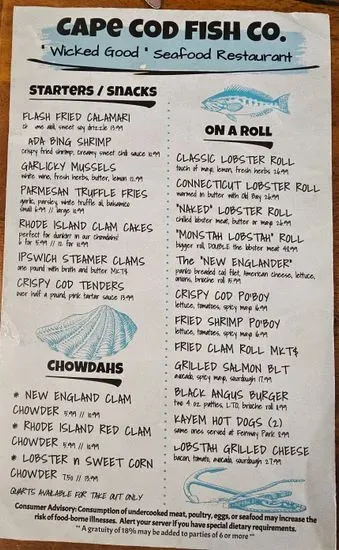 CAPE COD FISH CO.
"Wicked Good" Seafood Restaurant
STARTERS / SNACKS
FLASH FRIED CALAMARI
aioli, sweet soy drizzle 13.99
ADA BING SHRIMP
crispy fried shrimp, creamy sweet chili sauce
GARLICKY MUSSELS
white wine, fresh herbs, butter, lemon
PARMESAN TRUFFLE FRIES
garlic, parsley, white truffle oil, balsamico
small 6.99 // large
RHODE ISLAND CLAM CAKES
perfect for dunkin' in our chowdahs!
6 for 5.99 // 12 for
IPSWICH STEAMER CLAMS
one pound with broth and butter MKT$
CRISPY COD TENDERS
over half a pound, pink tartar sauce 13.99
CHOWDAHS
* NEW ENGLAND CLAM
CHOWDER 5.99 //
* RHODE ISLAND RED CLAM
CHOWDER 5.99 //
* LOBSTER n SWEET CORN
CHOWDER 7.50 //
QUARTS AVAILABLE FOR TAKE OUT ONLY
ON A ROLL
CLASSIC LOBSTER ROLL
touch of mayo, lemon, fresh herbs 26.99
CONNECTICUT LOBSTER ROLL
warmed in butter with Old Bay 26.99
"NAKED" LOBSTER ROLL
chilled lobster meat, butter or mayo 26.99
"MONSTAH LOBSTAH" ROLL
bigger roll, DOUBLE the lobster meat
The "NEW ENGLANDER"
panko breaded cod filet, American cheese, lettuce,
onions, brioche roll
CRISPY COD PO'BOY
lettuce, tomatoes, spicy mayo
FRIED SHRIMP PO'BOY
lettuce, tomatoes, spicy mayo
FRIED CLAM ROLL MKT$
GRILLED SALMON BLT
avocado, spicy mayo, sourdough 17.99
BLACK ANGUS BURGER
two 4 oz. patties, LTO, brioche roll
KAYEM HOT DOGS (2)
same ones served at Fenway Park
LOBSTAH GRILLED CHEESE
bacon, tomato, avocado, sourdough 27.99
Consumer Advisory: Consumption of undercooked meat, poultry, eggs, or seafood may increase the
risk of food-borne illnesses. Alert your server if you have special dietary requirements.
** A gratuity of 18% may be added to parties of 6 or more **